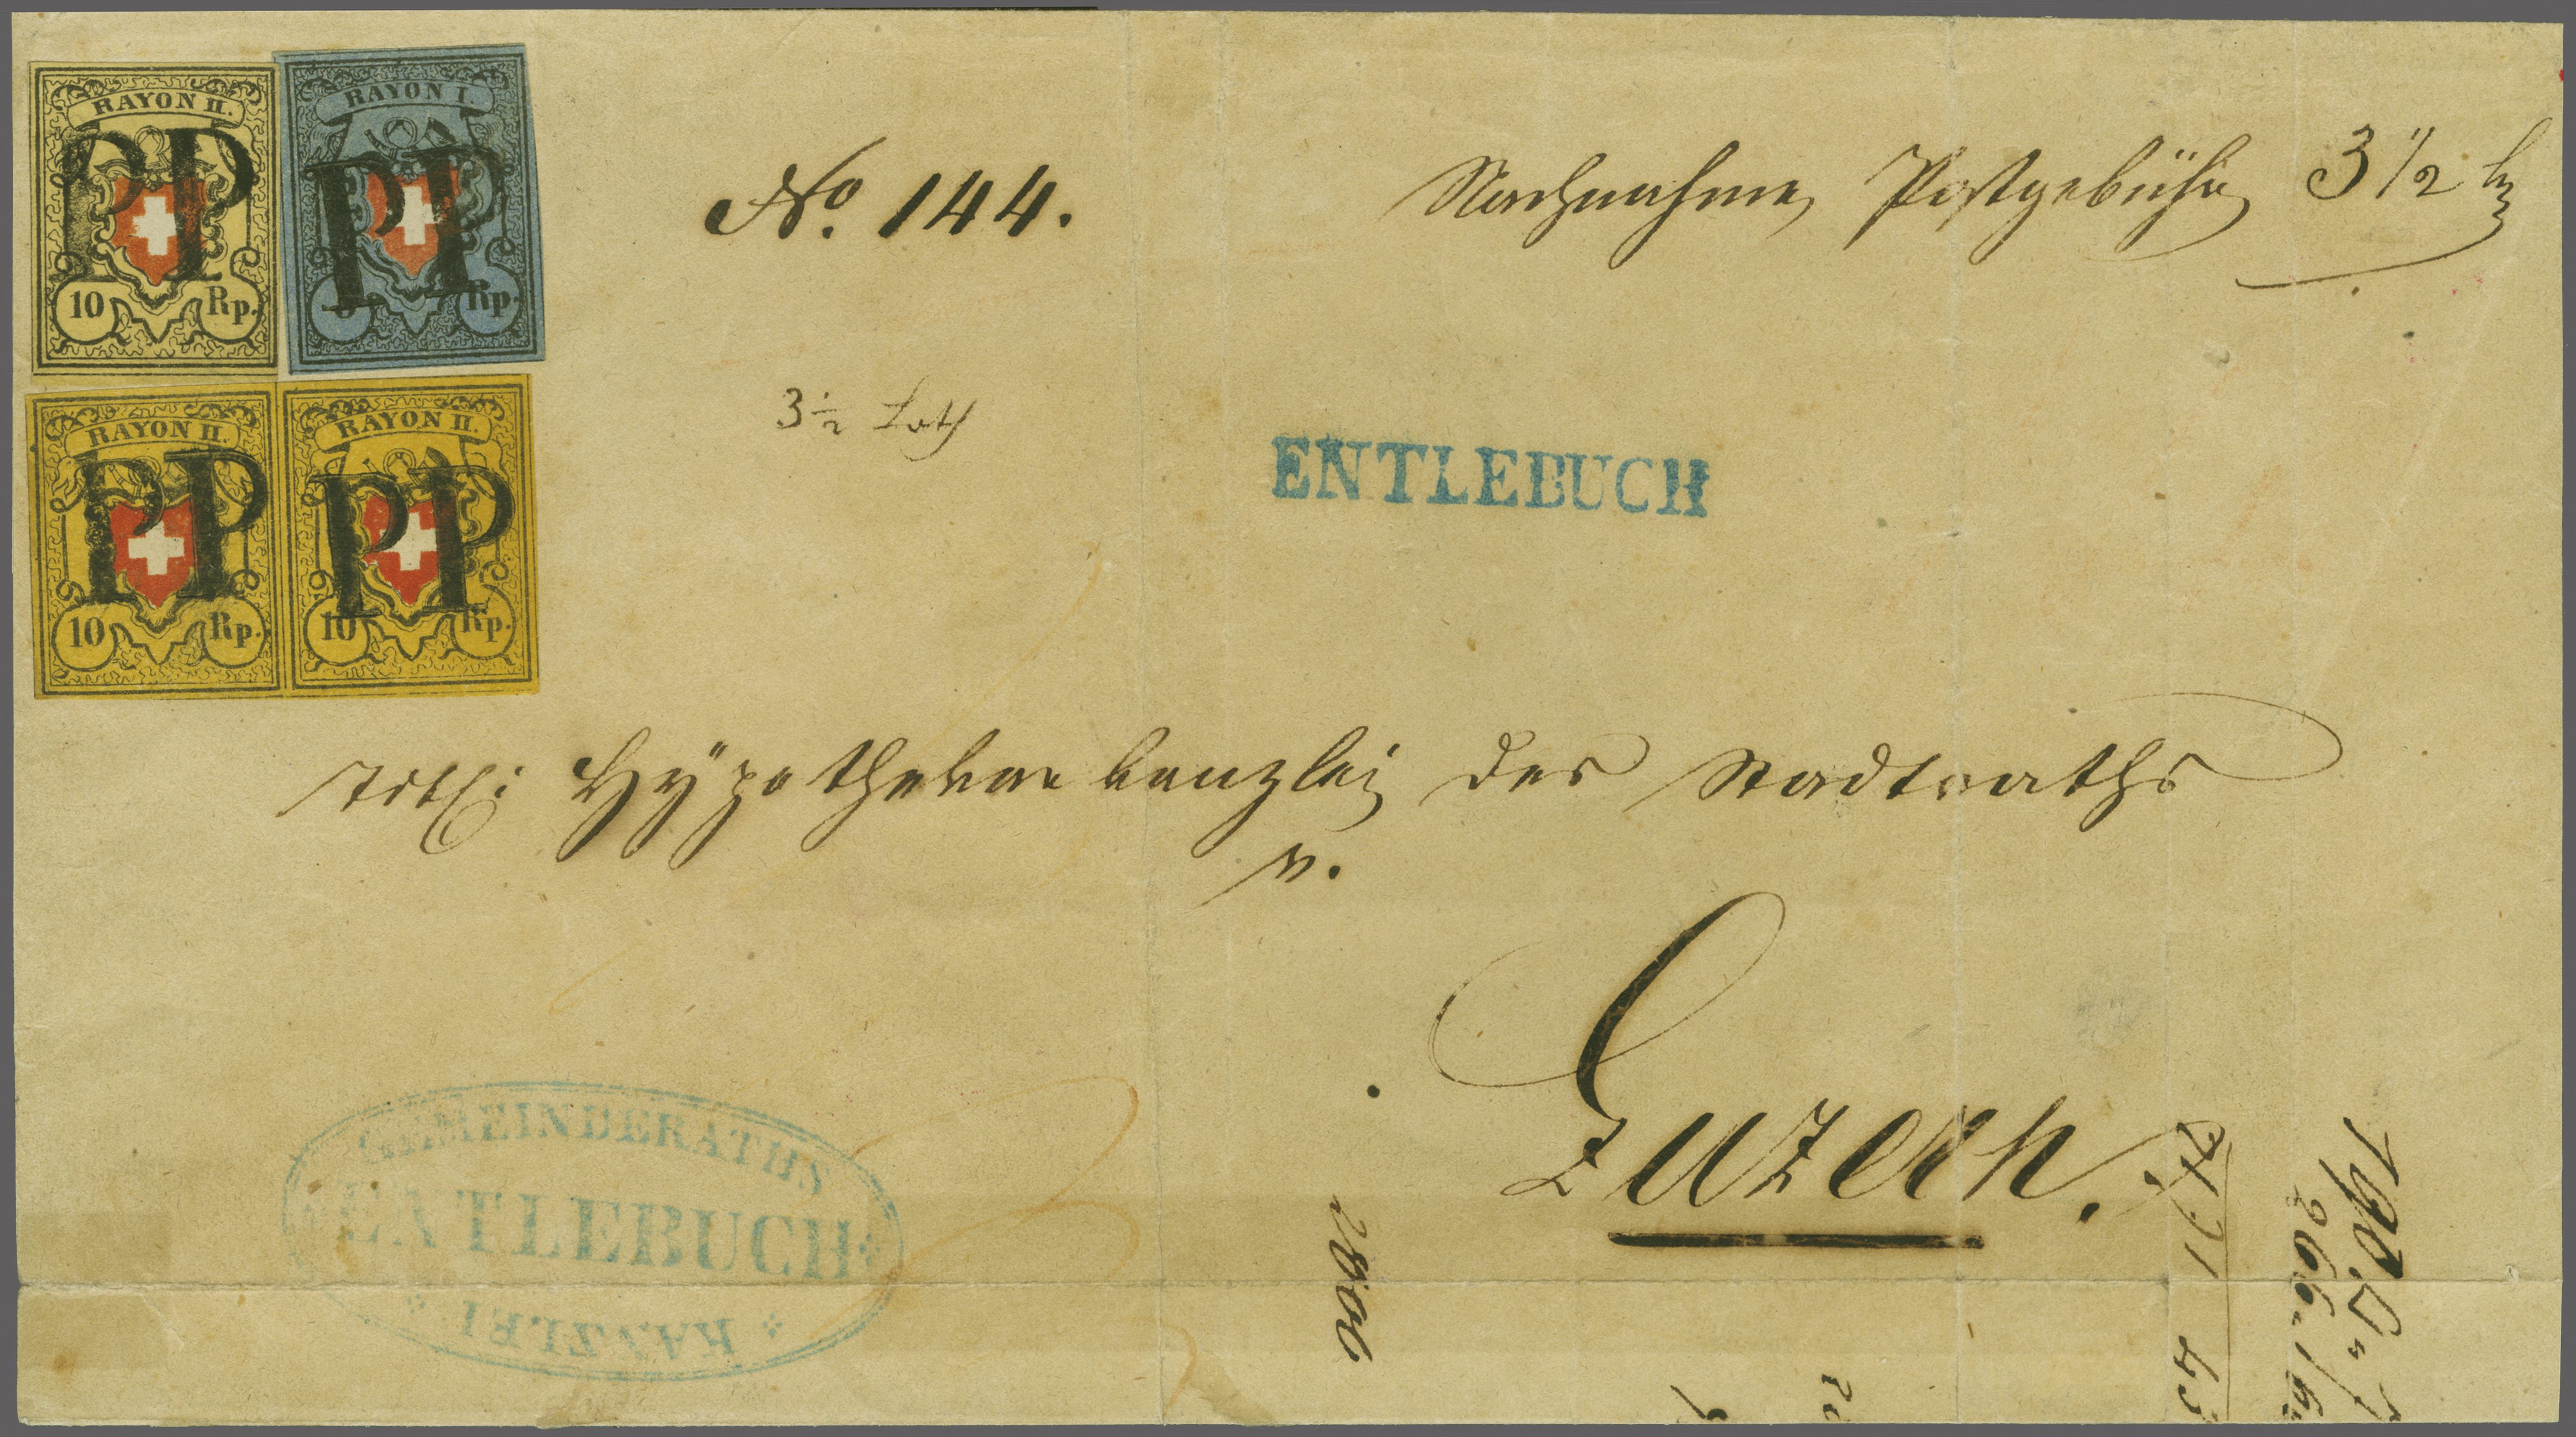 RAYON II.
PP
10 Rp.
RAYON I.
PP
5 Rp.
RAYON II.
PP
10 Rp.
RAYON II.
PP
10 Rp.
No. 144.
Nachnahme, Postgebühr 3 1/2
3 1/2 Loth
ENTLEBUCH
Hÿpothekarkanzlei des Stadtraths
v.
Luzern.
GEMEINDERATHS
ENTLEBUCH
KANZLEI